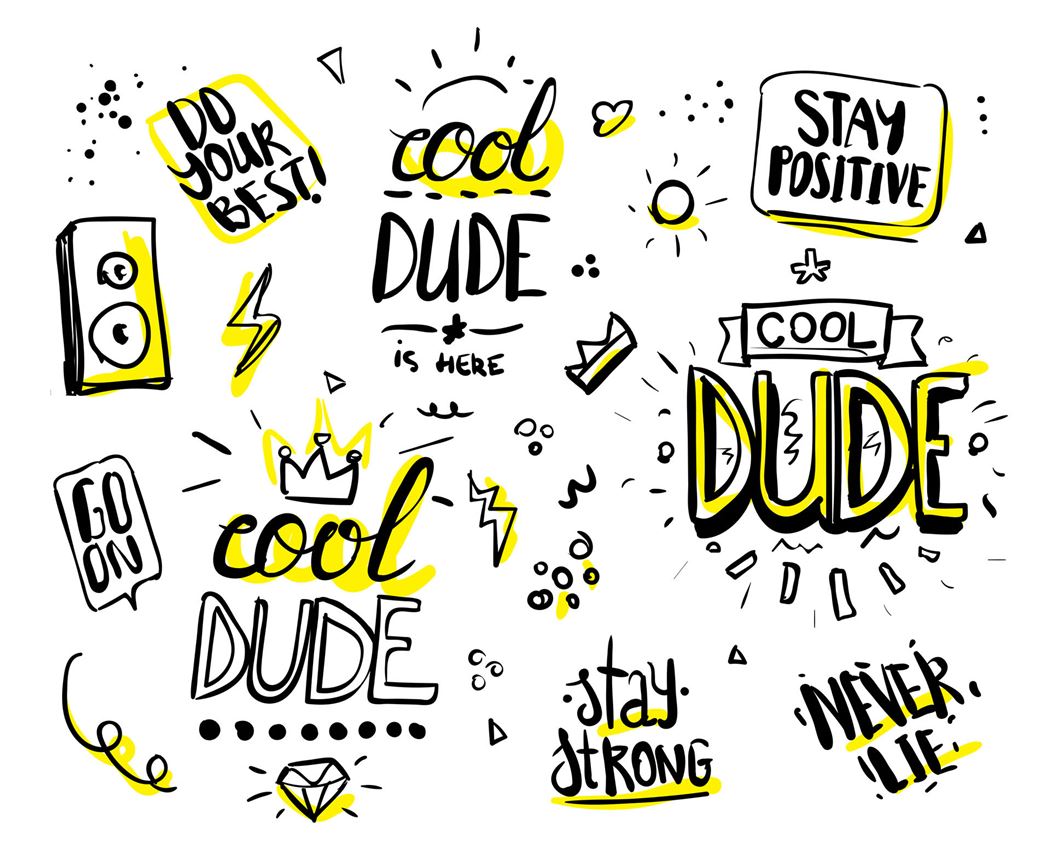 DO
YOUR
BEST!
cool
DUDE
is HERE
STAY
POSITIVE
COOL
DUDE
GO
ON
cool
DUDE
stay
STRONG
NEVER
LIE